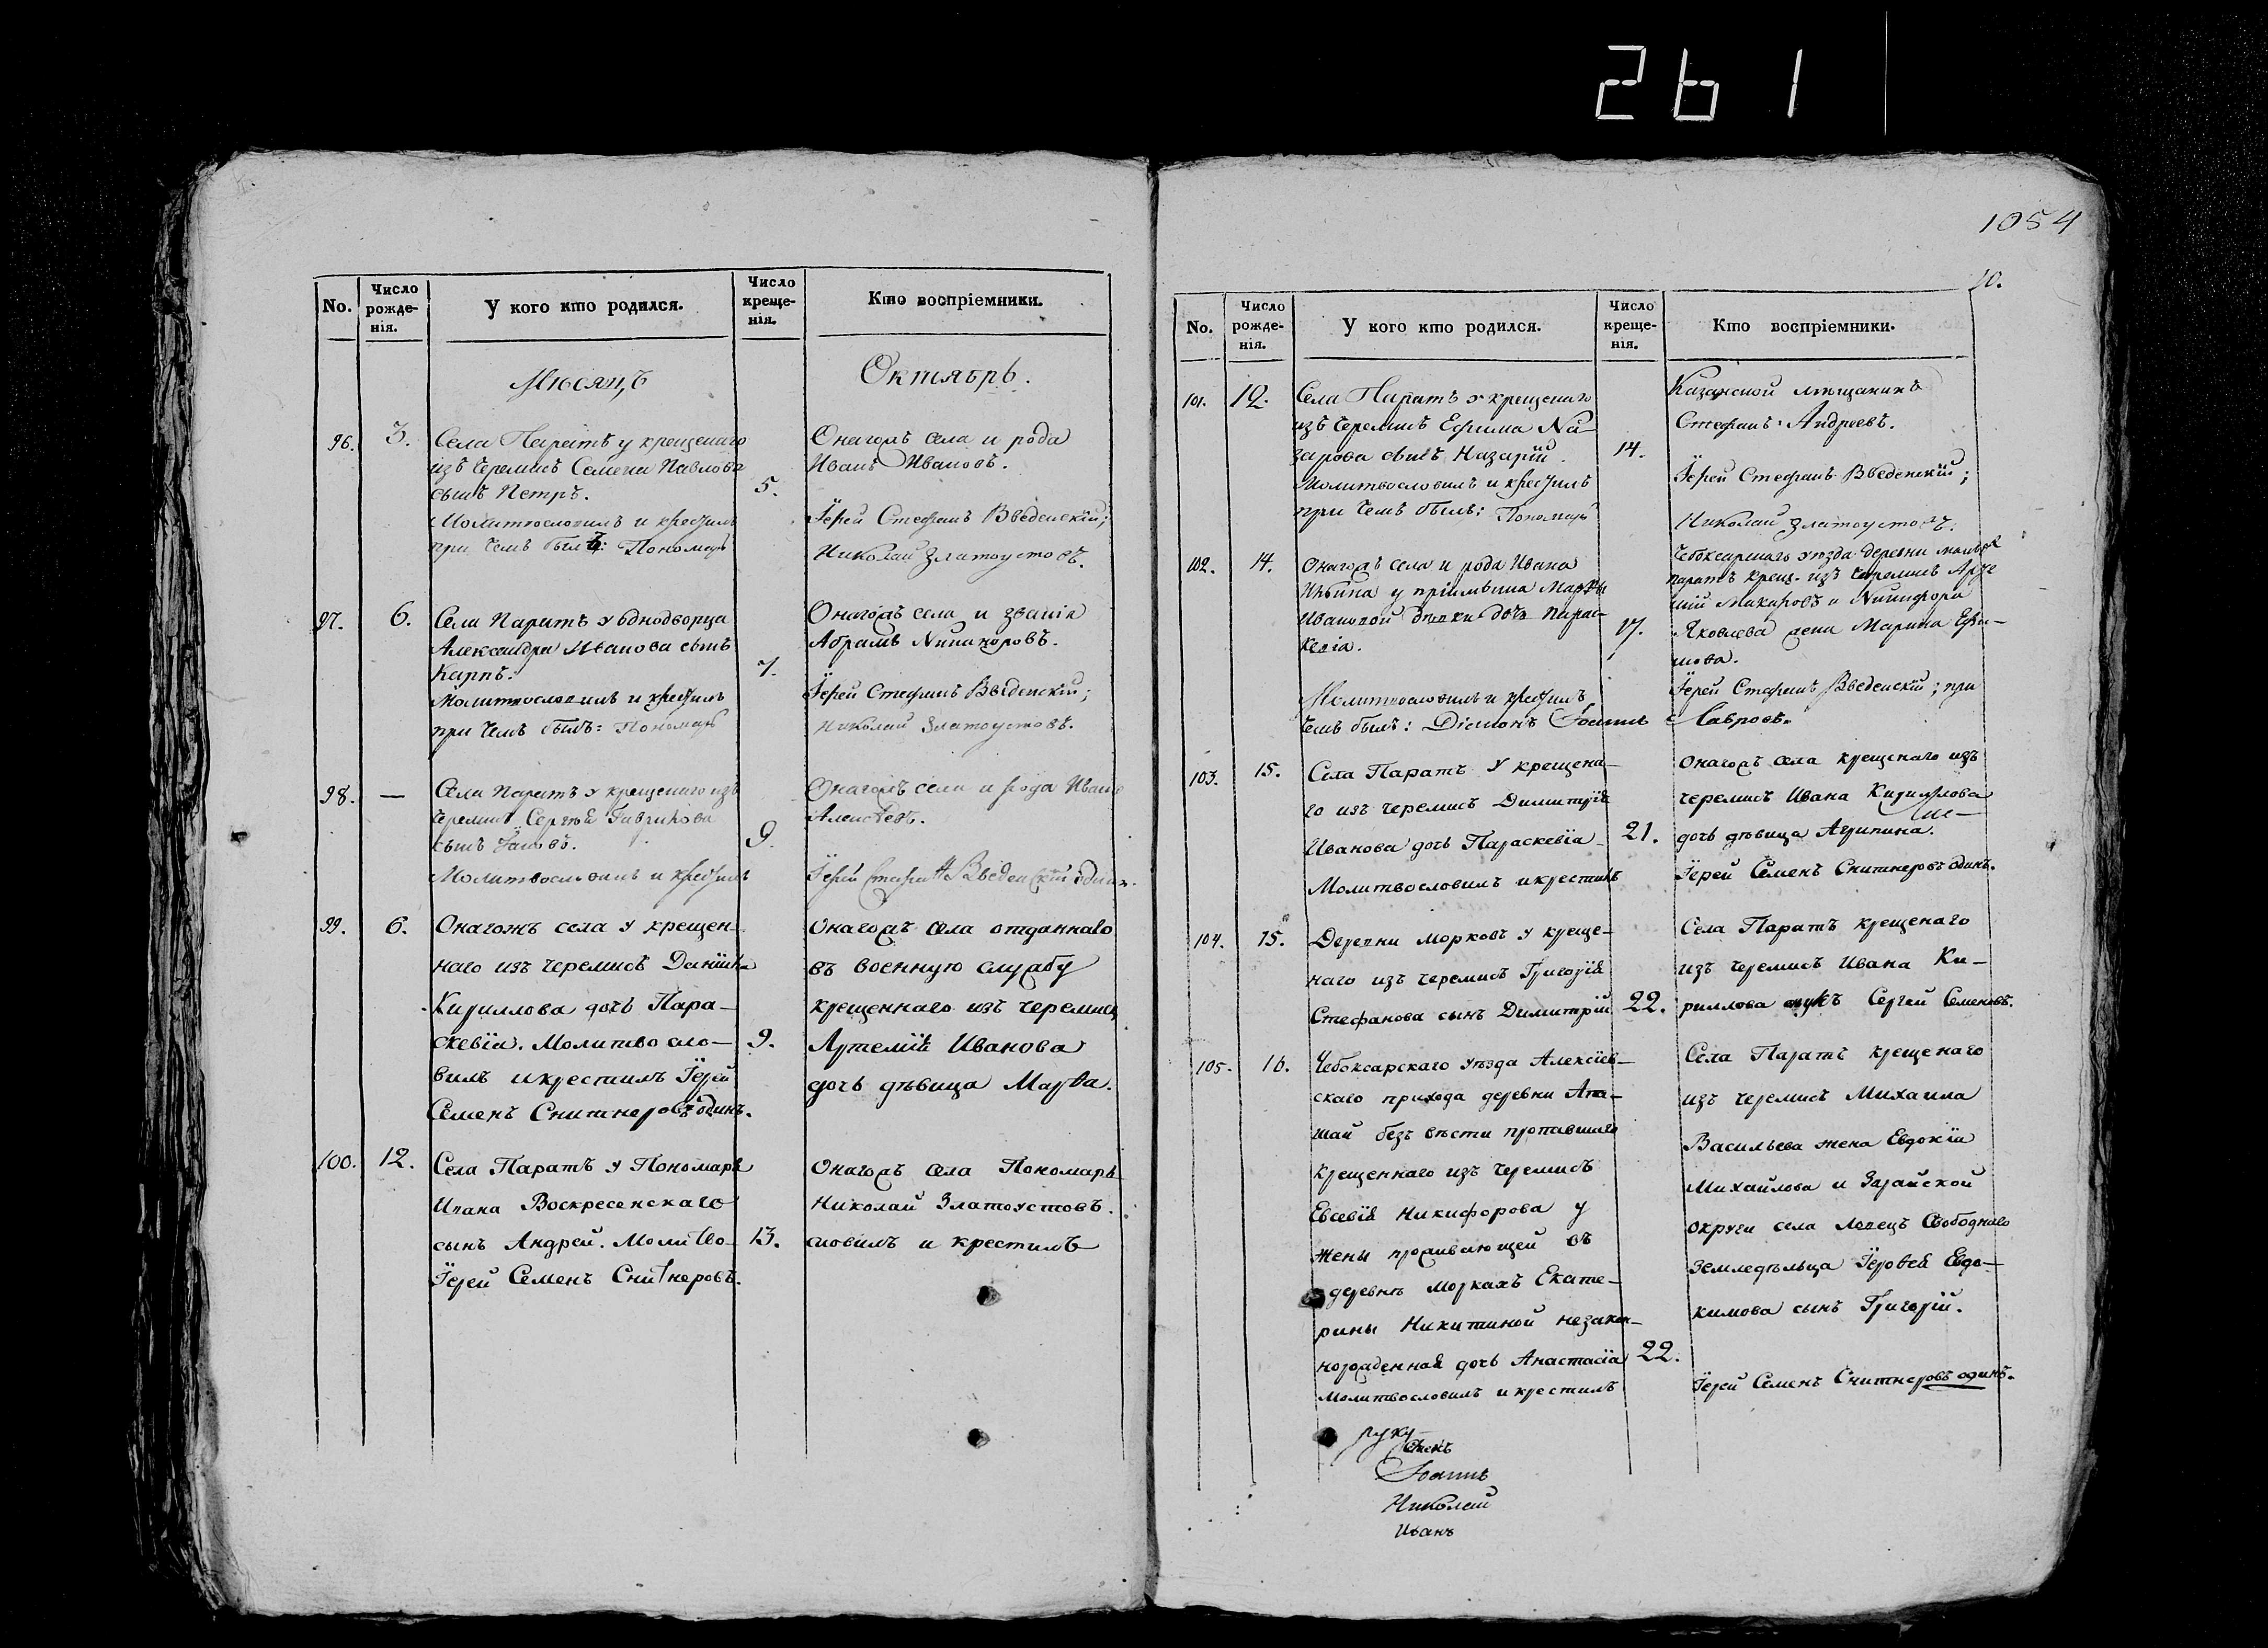 261
1054
10.
No.
Число рожде-нія.
У кого кто родился.
Число креще-нія.
Кто воспріемники.
Мѣсяцъ
Октябрь.
96.
3.
Села Паратъ у крещенаго
изъ черемисъ Семена Павлова
сынъ Петръ.
Молитвословилъ и крестилъ
при чемъ былъ: Пономарь
5.
Онагожъ села и рода
Иванъ Ивановъ.
Іерей Стефанъ Введенскій;
Николай Златоустовъ.
97.
6.
Села Паратъ у однодворца
Александра Иванова сынъ
Карпъ.
Молитвословилъ и крестилъ
при чемъ былъ: Пономарь
7.
Онагожъ села и званія
Абрамъ Никаноровъ.
Іерей Стефанъ Введенскій;
Николай Златоустовъ.
98.
—
Села Паратъ у крещенаго изъ
черемисъ Сергѣя Гаврилова
сынъ Іаковъ.
Молитвословилъ и крестилъ
9.
Онагожъ села и рода Иванъ
Алексѣевъ.
Іерей Стефанъ Введенскій одинъ.
99.
6.
Онагожъ села у крещен-
наго изъ черемисъ Даніила
Кириллова дочь Пара-
скевіа. Молитвосло-
вилъ и крестилъ Іерей
Семенъ Снитнеровъ одинъ.
9.
Онагожъ села отданнаго
въ военную службу
крещеннаго изъ черемисъ
Артемія Иванова
дочь дѣвица Марѳа.
100.
12.
Села Паратъ у Пономаря
Ивана Воскресенскаго
сынъ Андрей. Молитво-
Іерей Семенъ Снитнеровъ.
13.
Онагожъ села Пономарь
Николай Златоустовъ.
словилъ и крестилъ
No.
Число рожде-нія.
У кого кто родился.
Число креще-нія.
Кто воспріемники.
101.
12.
Села Паратъ у крещенаго
изъ черемисъ Ефима На-
зарова сынъ Назарій.
Молитвословилъ и крестилъ
при чемъ былъ: Пономарь
14.
Казанской мѣщанинъ
Стефанъ Андреевъ.
Іерей Стефанъ Введенскій;
Николай Златоустовъ.
102.
14.
Онагожъ села и рода Ивана
Ильина у пріимыша Марѳы
Ивановой дѣвки дочь Парас-
кевіа.
Молитвословилъ и крестилъ
чемъ былъ: Діаконъ Іоаннъ
17.
Чебоксарскаго уѣзда деревни
Паратъ крещ. изъ черемисъ
Макаровъ и Никифора
Яковлева жена Марина Ефи-
мова.
Іерей Стефанъ Введенскій; при
Лавровъ.
103.
15.
Села Паратъ у крещена-
го изъ черемисъ Димитрія
Иванова дочь Параскевіа
Молитвословилъ и крестилъ
21.
Онагожъ села крещенаго изъ
черемисъ Ивана Кириллова
дочь дѣвица Агрипина.
Іерей Семенъ Снитнеровъ одинъ.
104.
15.
Деревни Морковъ у креще-
наго изъ черемисъ Григорія
Стефанова сынъ Димитрій
22.
Села Паратъ крещенаго
изъ черемисъ Ивана Ки-
риллова внукъ Сергей Семеновъ.
105.
16.
Чебоксарскаго уѣзда Алексіев-
скаго прихода деревни Апа-
шай безъ вѣсти пропавшаго
крещеннаго изъ черемисъ
Евсевія Никифорова у
жены проживающей въ
деревнѣ Моркахъ Екате-
рины Никитиной незакон-
норожденная дочь Анастасіа
Молитвословилъ и крестилъ
22.
Села Паратъ крещенаго
изъ черемисъ Михаила
Васильева жена Евдокіа
Михайлова и Зарайской
округи села Ловецъ Свободнаго
земледѣльца Іеровея Евдо-
кимова сынъ Григорій.
Іерей Семенъ Снитнеровъ одинъ.
руку
Іоаннъ
Николай
Иванъ